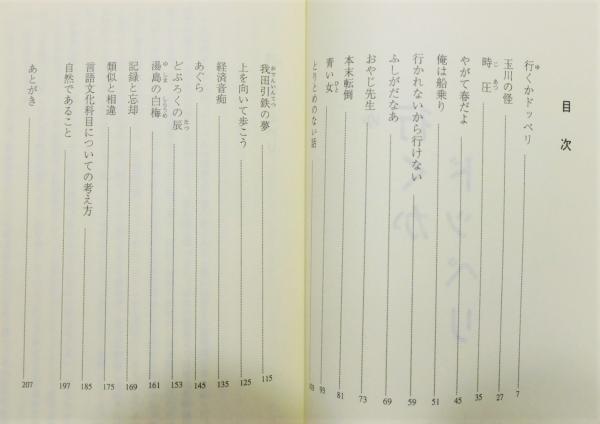 目次
行くかドッペリ 7
玉川の怪 27
時圧 35
やがて春だよ 45
俺は船乗り 51
行かれないから行けない 59
ふしがだなあ 69
おやじ先生 73
本末転倒 81
青い女 93
とりとめのない話
我田引鉄の夢 115
上を向いて歩こう 125
経済音痴 135
あぐら 145
どぶろくの辰 153
湯島の白梅 161
記録と忘却 169
類似と相違 175
言語文化科目についての考え方 185
自然であること 197
あとがき 207